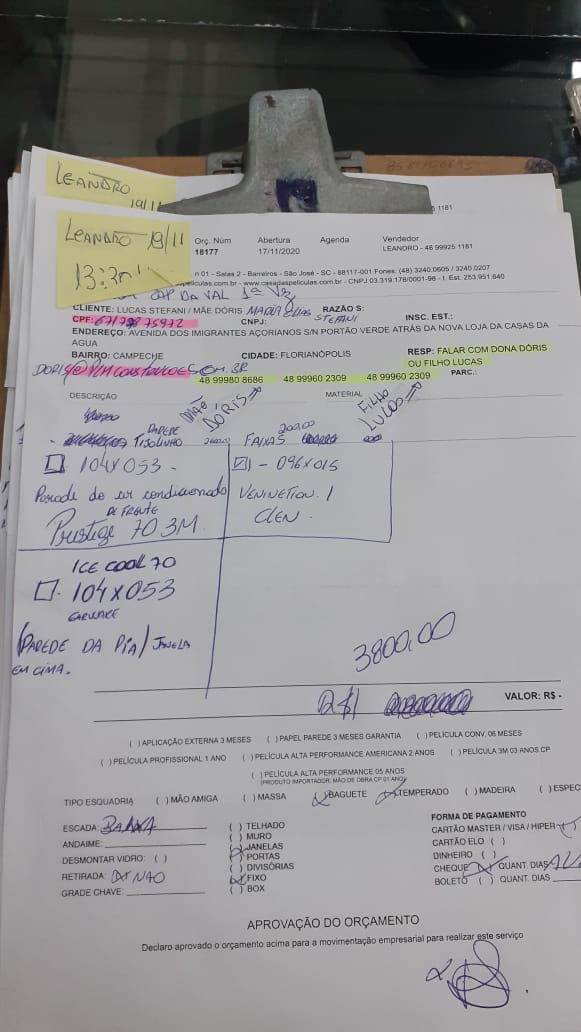 LEANDRO
19/11
LEANDRO 19/11
13:30
1181
Orç. Núm Abertura Agenda Vendedor
18177 17/11/2020 LEANDRO - 48 99925 1181
n 01 - Salas 2 - Barreiros - São José - SC - 88117-001 Fones: (48) 3240.0605 / 3240.0207
peliculas.com.br - www.casadaspeliculas.com.br - CNPJ 03.319.178/0001-98 - I. Est. 253.951.640
CAP DA VAL 1ª VZ
CLIENTE: LUCAS STEFANI / MÃE DÓRIS MARIA STEFANI RAZÃO S:
CPF: CNPJ: INSC. EST.:
ENDEREÇO: AVENIDA DOS IMIGRANTES AÇORIANOS S/N PORTÃO VERDE ATRÁS DA NOVA LOJA DA CASAS DA
AGUA
BAIRRO: CAMPECHE CIDADE: FLORIANÓPOLIS RESP: FALAR COM DONA DÓRIS
OU FILHO LUCAS
48 99980 8686 48 99960 2309 48 99960 2309 PARC.:
DESCRIÇÃO MATERIAL
MÃE DÓRIS FILHO LUCAS
PAREDE TIJOLINHO FAIXAS 200,00
104X053 - 1 - 096X015
Parede do ar condicionado
DE FRENTE
Prestige 70 3M.
ICE COOL 70
104X053
GARWARE
(PAREDE DA PIA / JANELA
EM CIMA.
3800,00
R$ VALOR: R$ -
( ) APLICAÇÃO EXTERNA 3 MESES ( ) PAPEL PAREDE 3 MESES GARANTIA ( ) PELÍCULA CONV. 06 MESES
( ) PELÍCULA PROFISSIONAL 1 ANO ( ) PELÍCULA ALTA PERFORMANCE AMERICANA 2 ANOS ( ) PELÍCULA 3M 03 ANOS CP
( ) PELÍCULA ALTA PERFORMANCE 05 ANOS
(PRODUTO IMPORTADOR, MÃO DE OBRA CP 01 ANO)
TIPO ESQUADRIA ( ) MÃO AMIGA ( ) MASSA (X) BAGUETE (X) TEMPERADO ( ) MADEIRA ( ) ESPEC
ESCADA: BAIXA ( ) TELHADO FORMA DE PAGAMENTO
ANDAIME: ( ) MURO CARTÃO MASTER / VISA / HIPER ( )
DESMONTAR VIDRO: ( ) (X) JANELAS CARTÃO ELO ( )
RETIRADA: (X) NÃO (X) PORTAS DINHEIRO ( )
GRADE CHAVE: ( ) DIVISÓRIAS CHEQUE (X) QUANT. DIAS
(X) FIXO BOLETO ( ) QUANT. DIAS
( ) BOX
APROVAÇÃO DO ORÇAMENTO
Declaro aprovado o orçamento acima para a movimentação empresarial para realizar este serviço